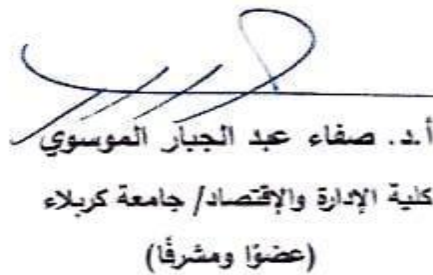 أ.د. صفاء عبد الجبار الموسوي
كلية الإدارة والإقتصاد/ جامعة كربلاء
(عضوًا ومشرفًا)